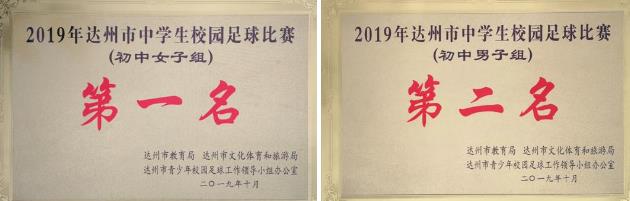 2019年达州市中学生校园足球比赛
(初中女子组)
第一名
达州市教育局 达州市文化体育和旅游局
达州市青少年校园足球工作领导小组办公室
二〇一九年十月
2019年达州市中学生校园足球比赛
(初中男子组)
第二名
达州市教育局 达州市文化体育和旅游局
达州市青少年校园足球工作领导小组办公室
二〇一九年十月